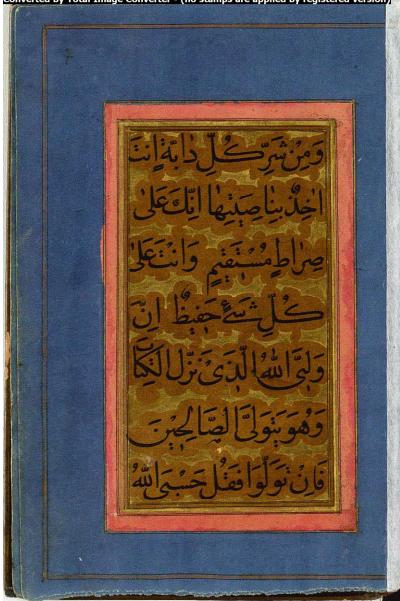 Converted by Total Image Converter - (no stamps are applied by registered version)
وَمِنْ شَرِّ كُلِّ دٰابَّةٍ اَنْتَ
اٰخِذٌ بِنٰاصِيَتِهٰا اِنَّكَ عَلىٰ
صِرٰاطٍ مُسْتَقيٖمٍ وَاَنْتَ عَلىٰ
كُلِّ شَئٍ حَفيٖظٌ اِنَّ
وَلِيَّ اللّٰهُ الَّذىٖ نَزَّلَ الْكِتٰابَ
وَهُوَ يَتَوَلَّى الصَّالِحيٖنَ
فَاِنْ تَوَلَّوْا فَقُلْ حَسْبِىَ اللّٰهُ